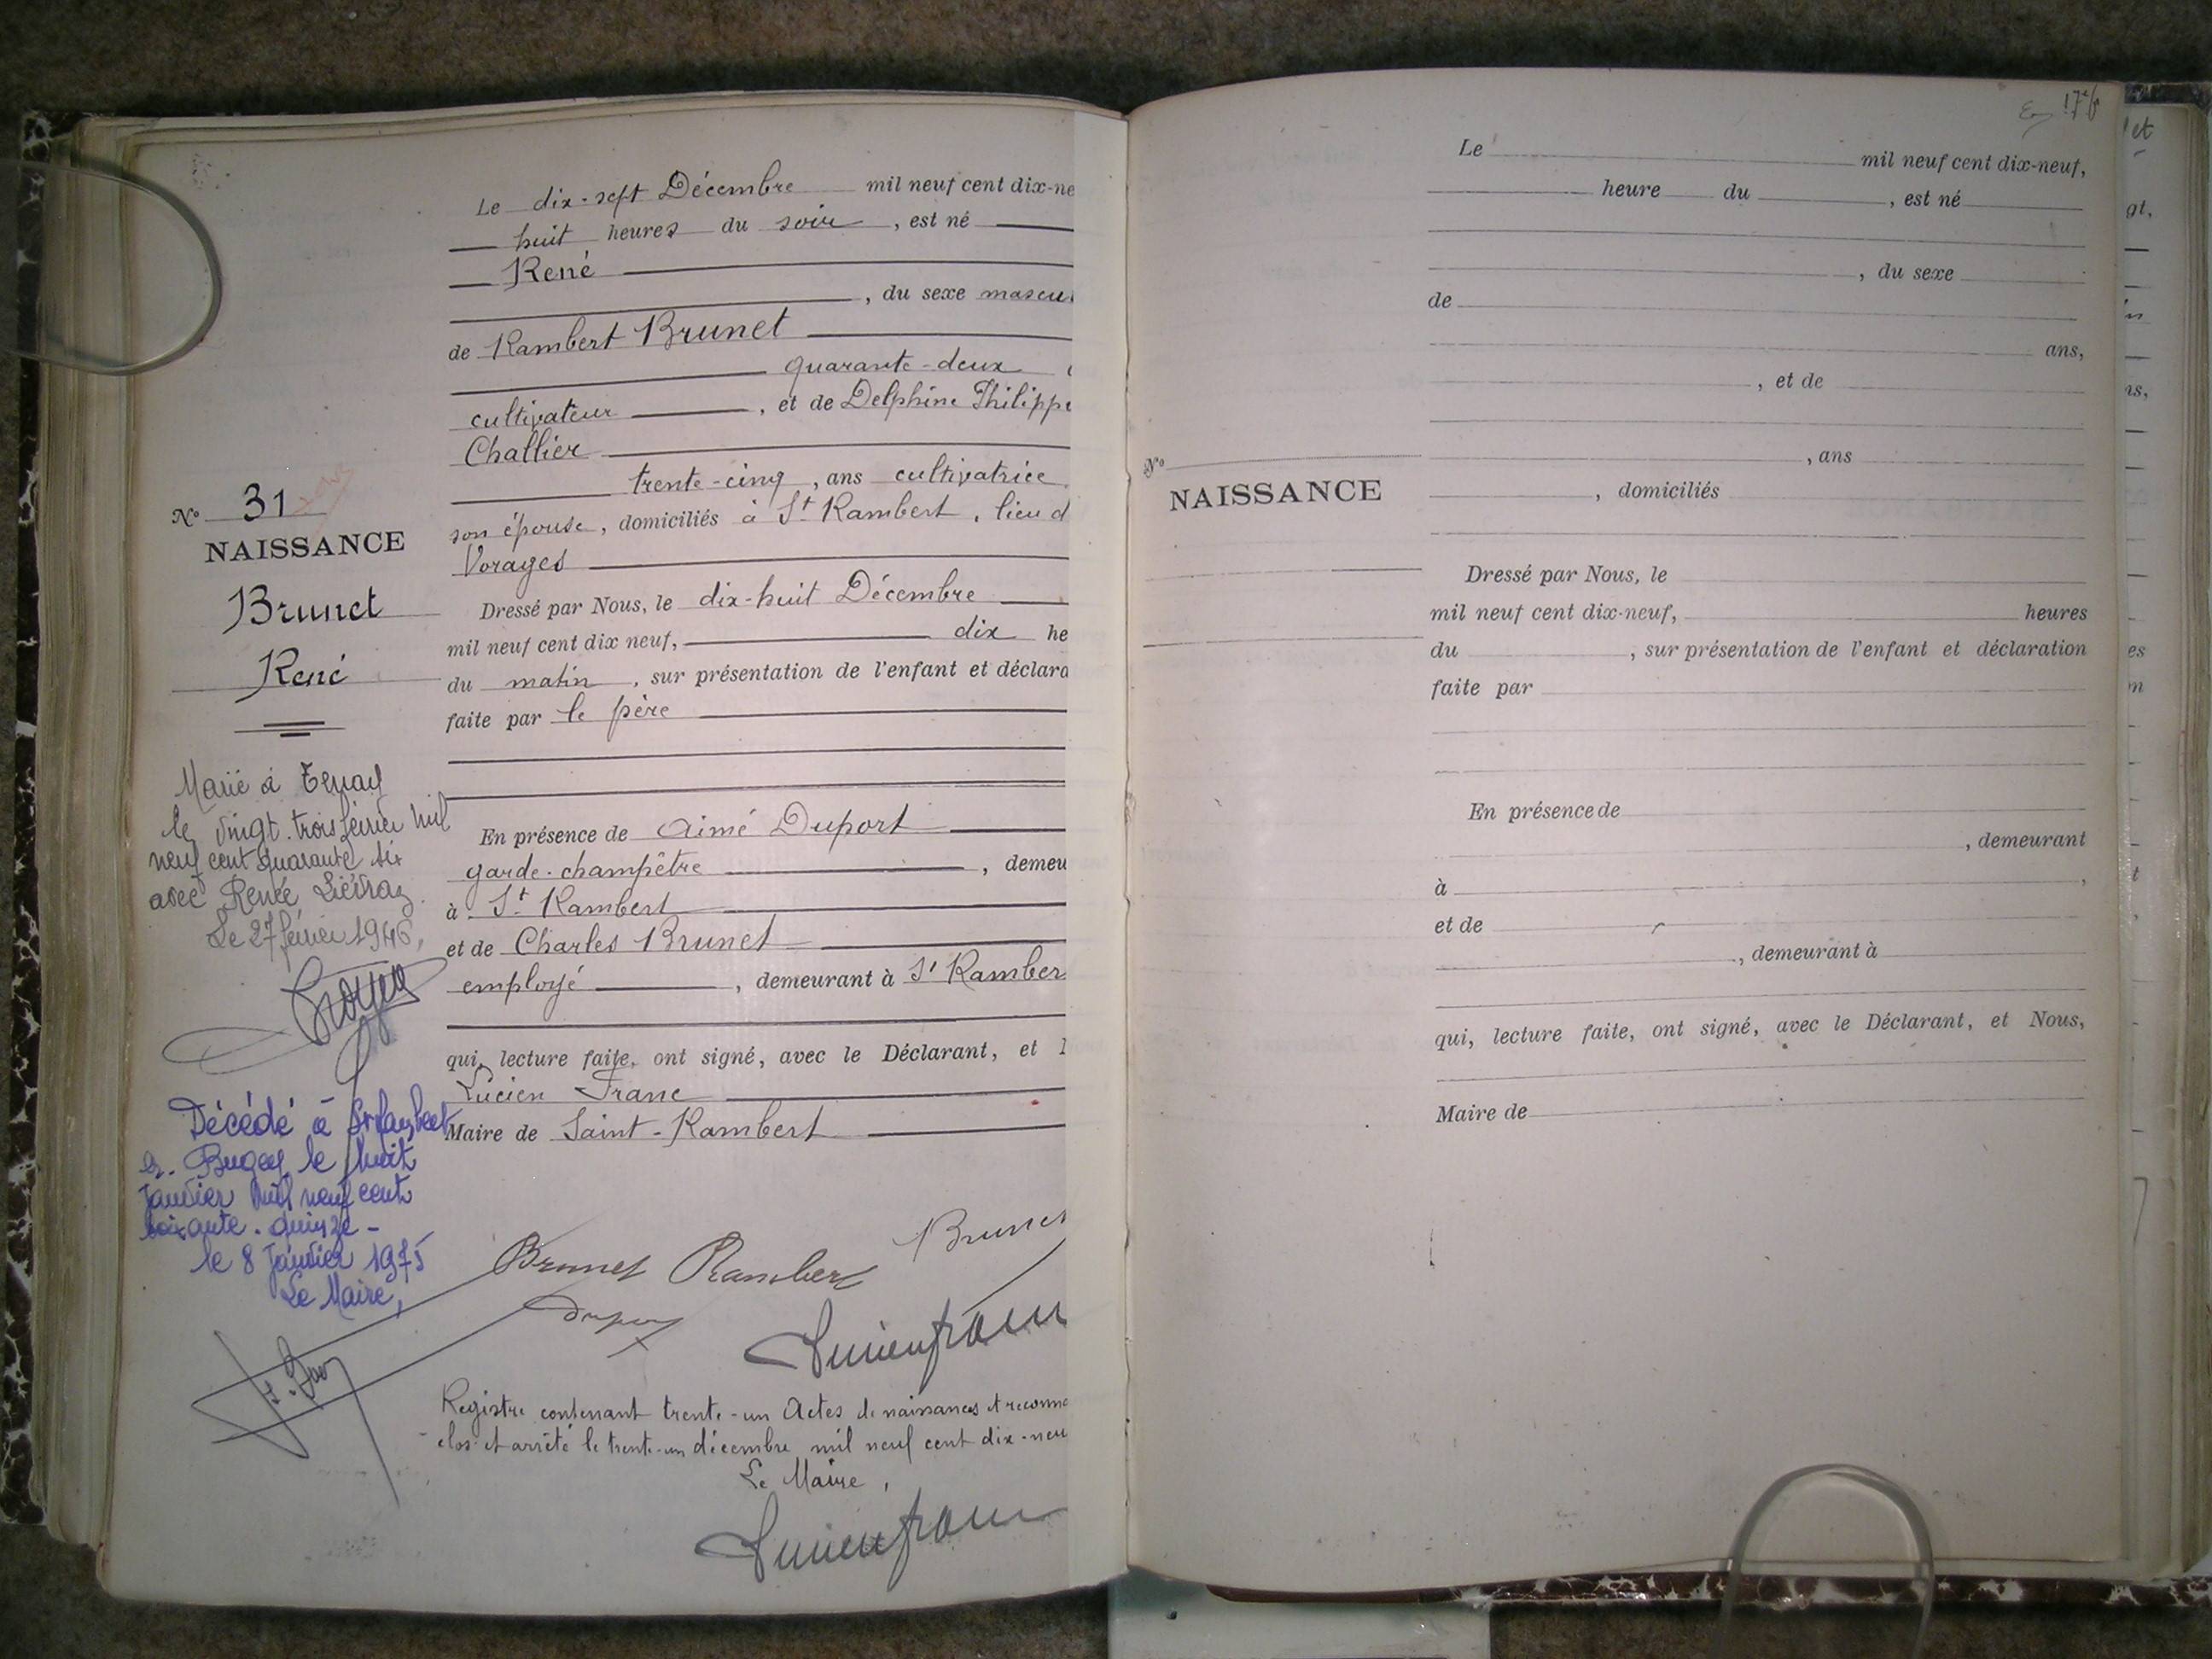 Le dix-sept Décembre mil neuf cent dix-ne
huit heures du soir, est né
René
, du sexe mascu
de Rambert Brunet
quarante-deux
cultivateur, et de Delphine Philippe
Challier
trente-cinq, ans cultivatrice
son épouse, domiciliés à St Rambert, lieu d
Vorages
Dressé par Nous, le dix-huit Décembre
mil neuf cent dix neuf, dix he
du matin, sur présentation de l'enfant et déclara
faite par le père
En présence de Aimé Duport
garde-champêtre, demeu
à St Rambert
et de Charles Brunet
employé, demeurant à St Ramber
qui, lecture faite, ont signé, avec le Déclarant, et
Lucien Franc
Maire de Saint-Rambert
Brunet Rambert Brunet
Lucien franc
Registre contenant trente-un Actes de naissances et reconna
clos et arrêté le trente-un décembre mil neuf cent dix-neu
Le Maire,
Lucien franc
No 31
NAISSANCE
Brunet
René
Marié à
le vingt-trois février mil
neuf cent quarante six
avec Renée
Le 27 février 1946,
Décédé à St Rambert
en-Bugey le huit
Janvier mil neuf cent
soixante-quinze-
le 8 Janvier 1975
Le Maire,
176
Le mil neuf cent dix-neuf,
heure du , est né
, du sexe
de
ans,
, et de
, ans
, domiciliés
No
NAISSANCE
Dressé par Nous, le
mil neuf cent dix-neuf, heures
du , sur présentation de l'enfant et déclaration
faite par
En présence de
, demeurant
à ,
et de
, demeurant à
qui, lecture faite, ont signé, avec le Déclarant, et Nous,
Maire de